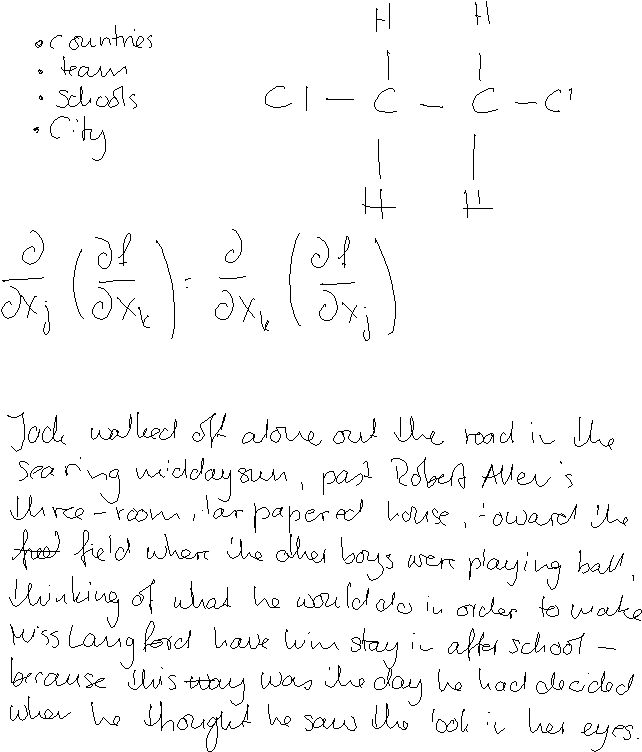 • countries
• team
• schools
• City
H H
Cl — C — C — Cl
H H
∂/∂xⱼ (∂f/∂xₖ) = ∂/∂xₖ (∂f/∂xⱼ)
Jack walked off alone out the road in the
searing midday sun, past Robert Allen's
three-room, tar papered house, toward the
field where the other boys were playing ball,
thinking of what he would do in order to make
Miss Langford have him stay in after school –
because this was the day he had decided
when he thought he saw the look in her eyes.